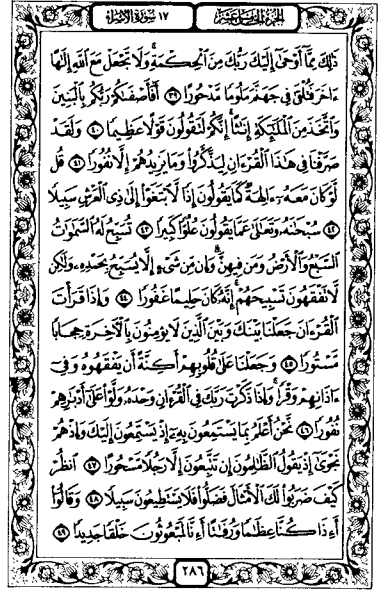 الجزء الخامس عشر
١٧ سورة الإسراء
ذَٰلِكَ مِمَّا أَوْحَىٰ إِلَيْكَ رَبُّكَ مِنَ الْحِكْمَةِ ۗ وَلَا تَجْعَلْ مَعَ اللَّهِ إِلَٰهًا
ءَاخَرَ فَتُلْقَىٰ فِي جَهَنَّمَ مَلُومًا مَدْحُورًا ٣٩ أَفَأَصْفَىٰكُمْ رَبُّكُم بِالْبَنِينَ
وَاتَّخَذَ مِنَ الْمَلَٰٓئِكَةِ إِنَٰثًا ۚ إِنَّكُمْ لَتَقُولُونَ قَوْلًا عَظِيمًا ٤٠ وَلَقَدْ
صَرَّفْنَا فِي هَٰذَا الْقُرْءَانِ لِيَذَّكَّرُوا وَمَا يَزِيدُهُمْ إِلَّا نُفُورًا ٤١ قُل
لَّوْ كَانَ مَعَهُۥٓ ءَالِهَةٌ كَمَا يَقُولُونَ إِذًا لَّابْتَغَوْا إِلَىٰ ذِي الْعَرْشِ سَبِيلًا
٤٢ سُبْحَٰنَهُۥ وَتَعَٰلَىٰ عَمَّا يَقُولُونَ عُلُوًّا كَبِيرًا ٤٣ تُسَبِّحُ لَهُ السَّمَٰوَٰتُ
السَّبْعُ وَالْأَرْضُ وَمَن فِيهِنَّ ۚ وَإِن مِّن شَيْءٍ إِلَّا يُسَبِّحُ بِحَمْدِهِۦ وَلَٰكِن
لَّا تَفْقَهُونَ تَسْبِيحَهُمْ ۗ إِنَّهُۥ كَانَ حَلِيمًا غَفُورًا ٤٤ وَإِذَا قَرَأْتَ
الْقُرْءَانَ جَعَلْنَا بَيْنَكَ وَبَيْنَ الَّذِينَ لَا يُؤْمِنُونَ بِالْءَاخِرَةِ حِجَابًا
مَّسْتُورًا ٤٥ وَجَعَلْنَا عَلَىٰ قُلُوبِهِمْ أَكِنَّةً أَن يَفْقَهُوهُ وَفِي
ءَاذَانِهِمْ وَقْرًا ۚ وَإِذَا ذَكَرْتَ رَبَّكَ فِي الْقُرْءَانِ وَحْدَهُۥ وَلَّوْا عَلَىٰٓ أَدْبَٰرِهِمْ
نُفُورًا ٤٦ نَّحْنُ أَعْلَمُ بِمَا يَسْتَمِعُونَ بِهِۦٓ إِذْ يَسْتَمِعُونَ إِلَيْكَ وَإِذْ هُمْ
نَجْوَىٰٓ إِذْ يَقُولُ الظَّٰلِمُونَ إِن تَتَّبِعُونَ إِلَّا رَجُلًا مَّسْحُورًا ٤٧ انظُرْ
كَيْفَ ضَرَبُوا لَكَ الْأَمْثَالَ فَضَلُّوا فَلَا يَسْتَطِيعُونَ سَبِيلًا ٤٨ وَقَالُوٓا
أَءِذَا كُنَّا عِظَٰمًا وَرُفَٰتًا أَءِنَّا لَمَبْعُوثُونَ خَلْقًا جَدِيدًا ٤٩
٢٨٦